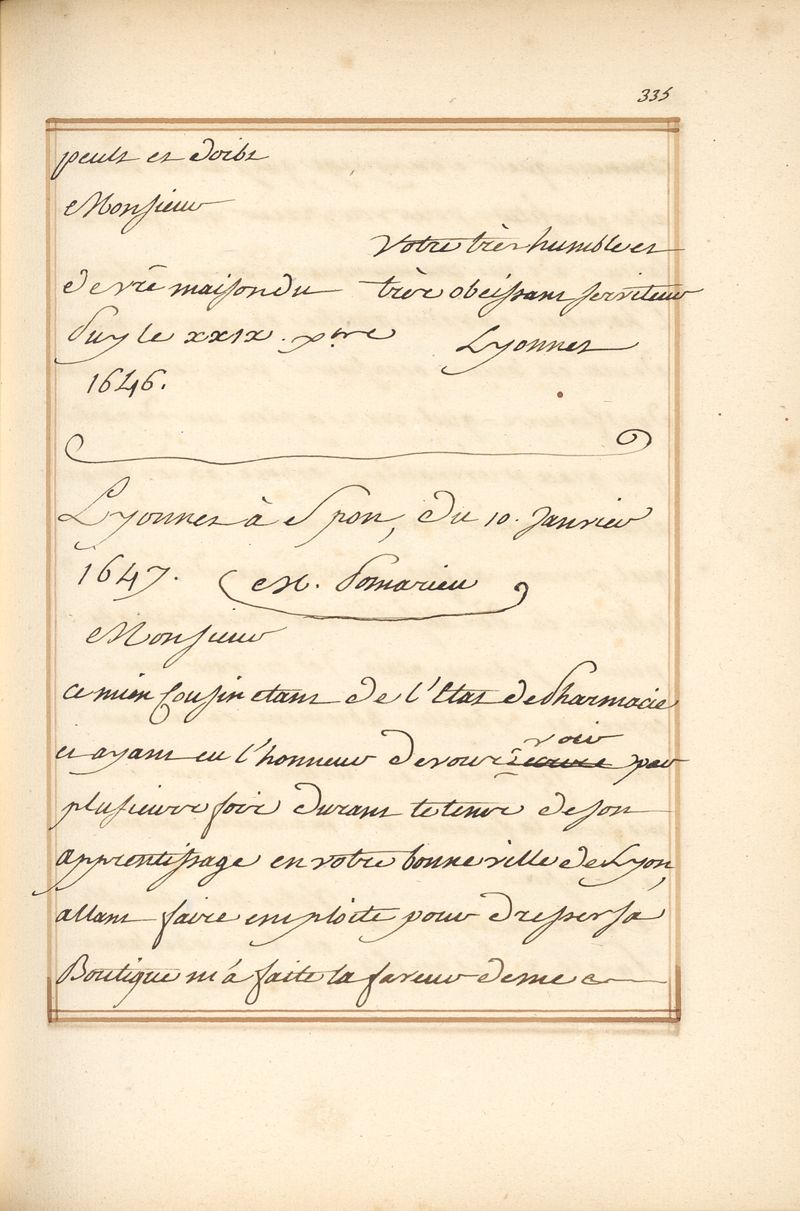 335
peult et doibt
Monsieur
Votre très humble et
de vrē maison du très obeissant serviteur
Puy le xxix. xbre Lyonnet
1646.
Lyonnet à Spon, du 10. Janvier
1647. M. Pomarieu
Monsieur
ce mien Cousin etant de l'Etat de Pharmacie
voir
et ayant eu l'honneur de vous ecrire par
plusieurs fois durant le tems de son
apprentissage en votre bonne ville de Lyon,
allant faire emploite pour dresser sa
Boutique m'a faite la faveur de me